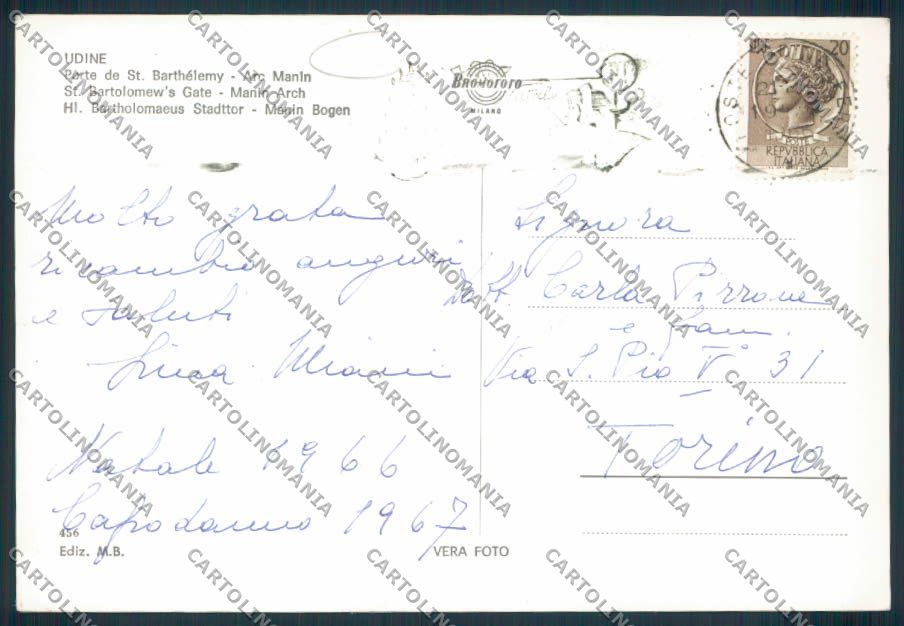 UDINE
Porte de St. Barthélemy - Arc Manin
St. Bartolomew's Gate - Manin Arch
Hl. Bartholomaeus Stadttor - Manin Bogen
MILANO
20
POSTE
REPVBBLICA
ITALIANA
Molto grata
ricambio auguri
e saluti
Natale 1966
Capodanno 1967
Signora
Dott. Carla Pirrone
e fam.
Via S. Pio V° 31
Torino
456
Ediz. M.B.
VERA FOTO
CARTOLINOMANIA